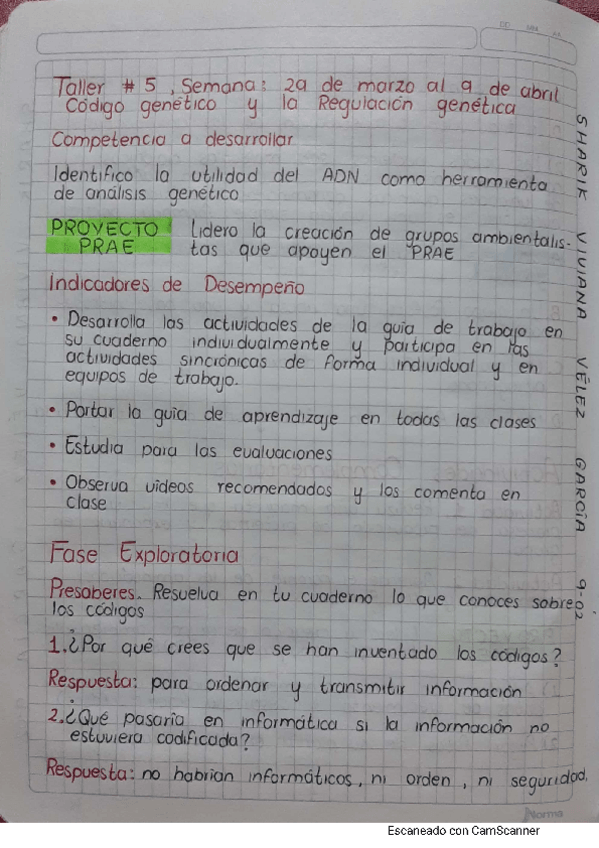 Taller # 5, Semana: 29 de marzo al 9 de abril
Código genético y la Regulación genética
Competencia a desarrollar
Identifico la utilidad del ADN como herramienta
de análisis genético
PROYECTO Lidero la creación de grupos ambientalis-
PRAE tas que apoyen el PRAE
Indicadores de Desempeño
• Desarrolla las actividades de la guia de trabajo en
su cuaderno individualmente y participa en las
actividades sincrónicas de forma individual y en
equipos de trabajo.
• Portar la guia de aprendizaje en todas las clases
• Estudia para las evaluaciones
• Observa videos recomendados y los comenta en
clase
Fase Exploratoria
Presaberes. Resuelva en tu cuaderno lo que conoces sobre
los códigos
1.¿Por qué crees que se han inventado los códigos?
Respuesta: para ordenar y transmitir información
2.¿Qué pasaria en informática si la información no
estuviera codificada?
Respuesta: no habrian informáticos, ni orden, ni seguridad.
SHARIK VIVIANA VÉLEZ GARCÍA 9-02
Norma
Escaneado con CamScanner